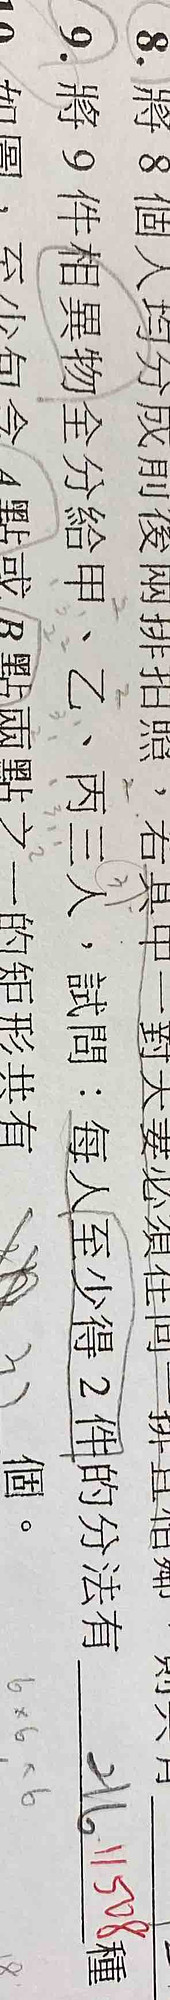 8. 將 8 個人均分成前後兩排拍照，若其中一對夫妻必須在同一排且相鄰，則共有
9. 將 9 件相異物全分給甲、乙、丙三人，試問：每人至少得 2 件的分法有 216 11508 種
如圖，至少包含 A 點或 B 點兩點之一的矩形共有 個。
6×6×6